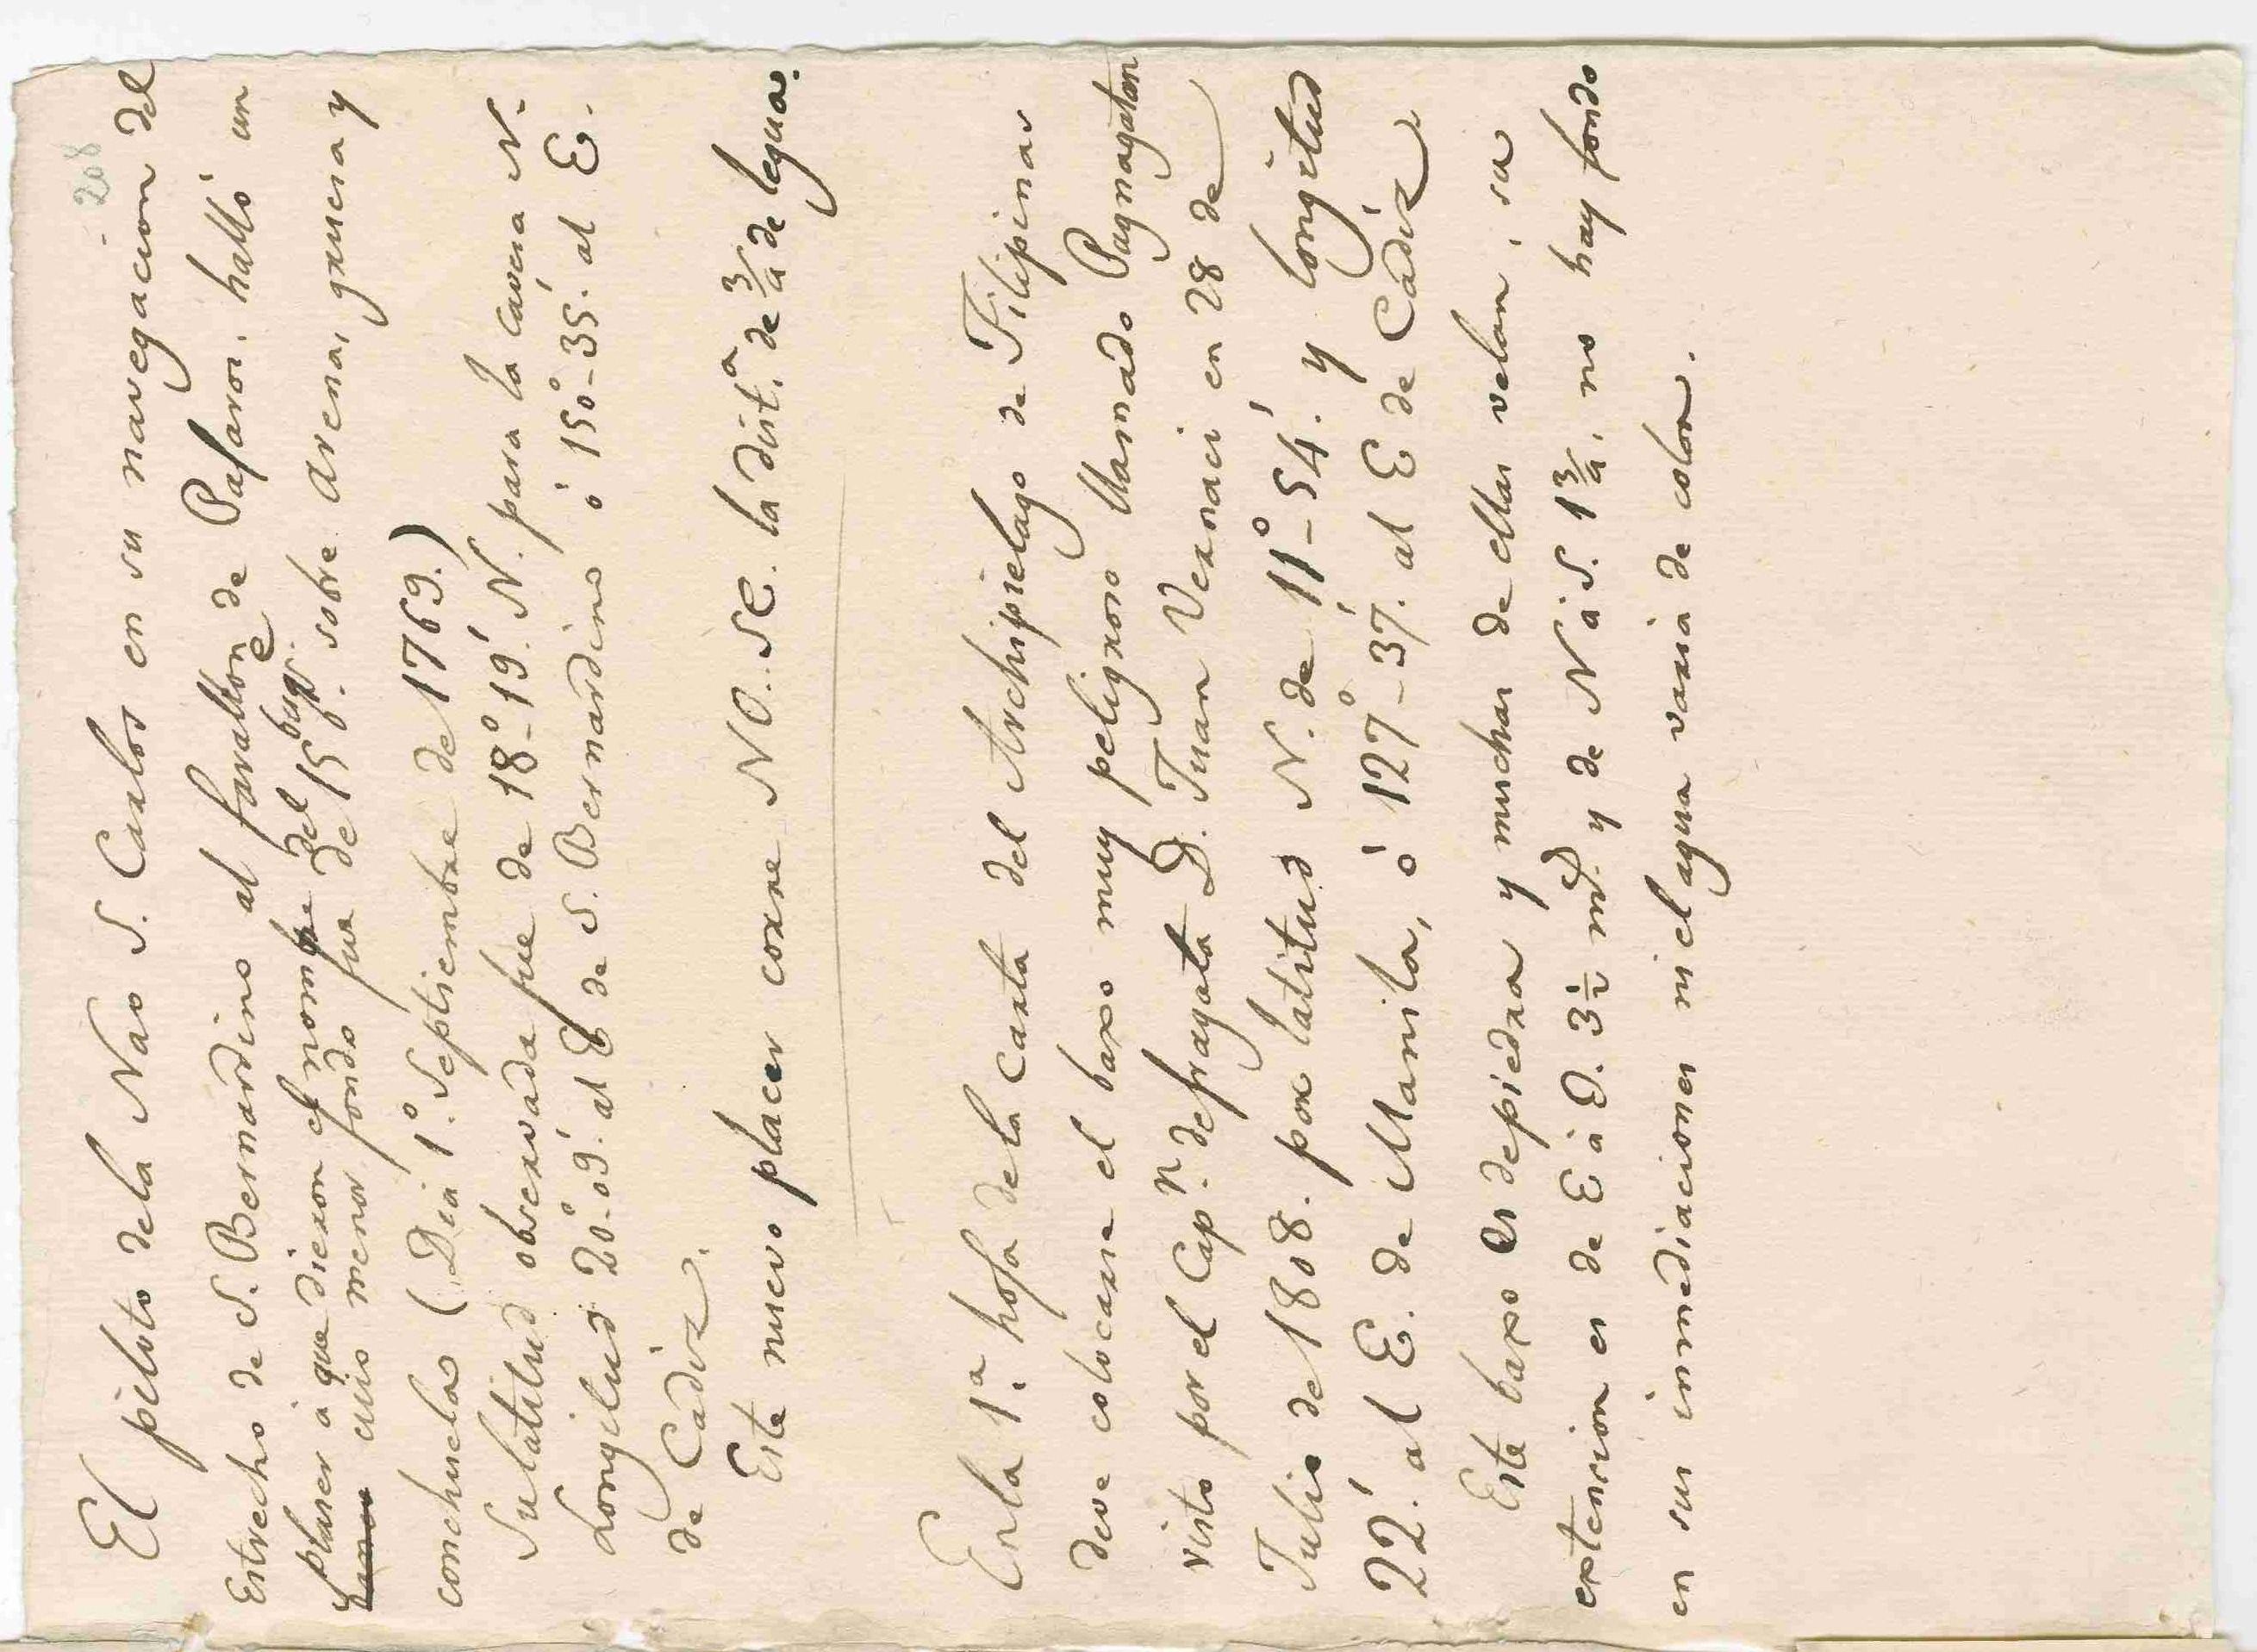 208
El piloto dela Nao S. Carlos en su navegacion del
Estrecho de S. Bernardino al farallon de Paxaros, halló un
placer à que dieron el nombre del buque
cuio menor fondo fue de 15 sobre arena, gruesa y
conchuela (Dia 1º. Septiembre de 1769.)
Su latitud observada fue de 18º-19'. N. para la cavesa N.
Longitud 20º-09'. al E de S. Bernardino ó 150º-35'. al E.
de Cadiz.
Este nuevo placer corre NO..SE. la distª. de ¾ de legua.
En la 1ª. hoja dela Carta del Archipielago de Filipinas
deve colocarse el baxo muy peligroso llamado Pagnagatan
visto por el Capn. de fragata D. Juan Vernaci en 28 de
Julio de 1808. por latitud N. de 11º-54'. y longitud
22'. al E. de Manila, ó 127º-37'. al E de Cadiz
Este baxo es de piedra y muchas de ellas velan, su
extension es de E à O. 3½ md. y de N à S. 1¾, no hay fondo
en sus inmediaciones ni el agua varia de color.